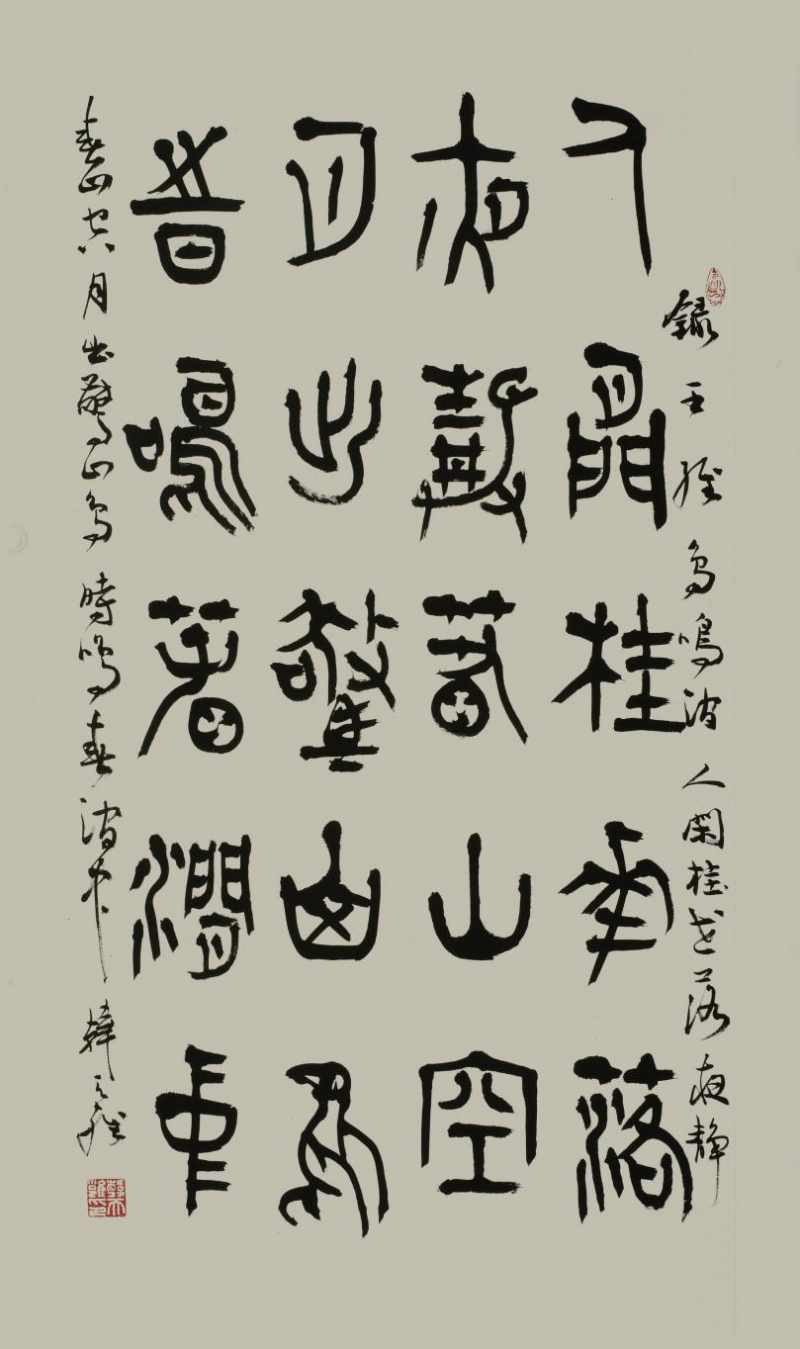 人閒桂華落
夜静春山空
月出驚山鳥
時鳴春澗中
録王維鳥鳴澗 人閑桂花落夜静
春山空月出驚山鳥時鳴春澗中 韓天雍